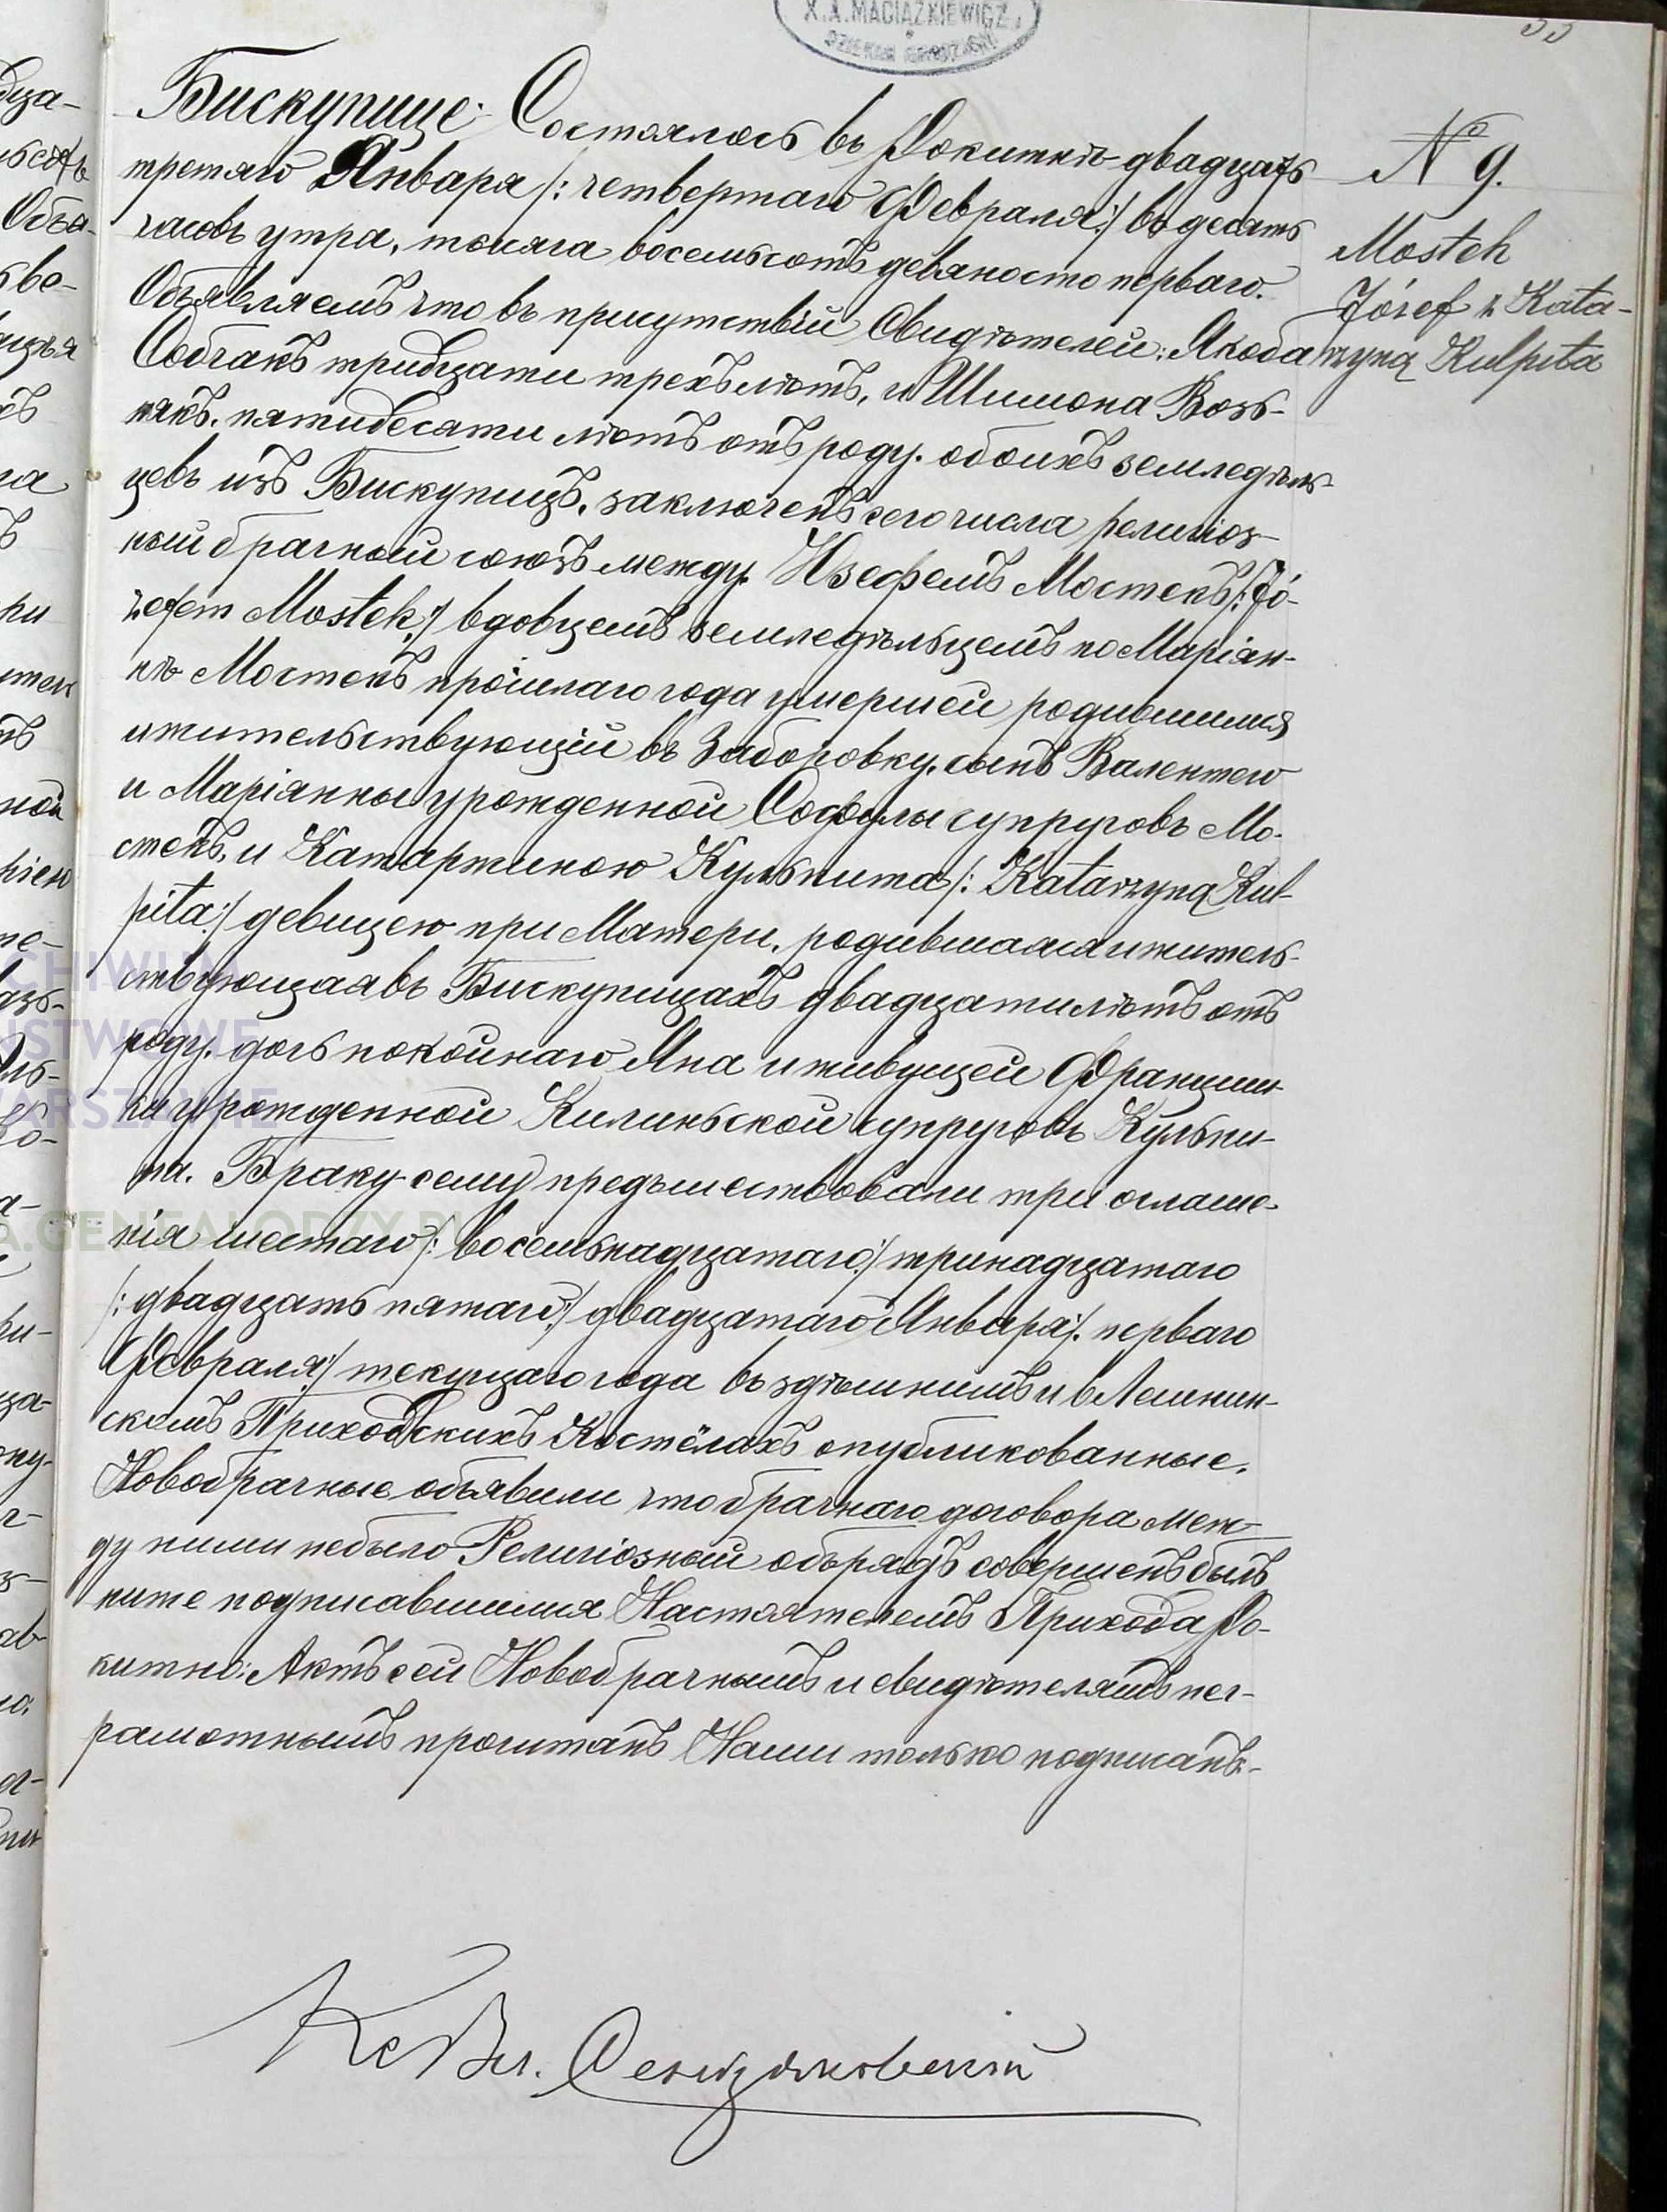 X. A. MACIĄŻKIEWICZ
DZIEKAN
Бискупице. Состоялось въ Рокитнѣ двадцать
третяго Января /: четвертаго Февраля :/ въ десять
часовъ утра, тысяча восемьсотъ девяносто перваго.
Объявляемъ что въ присутствіи Свидѣтелей: Якоба
Собчакъ тридцати трехъ лѣтъ, и Шимона Возь-
някъ, пятидесяти лѣтъ отъ роду, обоихъ земледѣль-
цевъ изъ Бискупицъ, заключенъ сего числа религіоз-
ный брачный союзъ между. Юзефемъ Мостекъ /: Jó-
zefem Mostek :/ вдовцемъ земледѣльцемъ по Маріян-
нѣ Мостекъ прошлаго года умершей родившимся
ижительствующій въ Заборовку, сынъ Валентего
и Маріянны урожденной супруговъ Мо-
стекъ, и Катаржиною Кульпита /: Katarzyną Kul-
pita :/ девицею при Матери, родившаяся ижитель-
ствующая въ Бискупицахъ двадцати лѣтъ отъ
роду. дочь покойнаго Яна и живущей Францишк
ки урожденной Килиньской супруговъ Кульпи-
та. Браку сему предъшествовали три оглаше-
нія шестаго /: восемьнадцатаго :/ тринадцатаго
/: двадцать пятаго :/ двадцатаго Января /: перваго
Февраля :/ текущаго года въ здѣшнимъ и в
скомъ Приходскихъ Костёлахъ опубликованные.
Новобрачные объявили что брачнаго договора меж-
ду ними небыло Религіозный обърядъ совершенъ былъ
ниже подписавшимся Настоятелемъ Прихода Ро-
китно: Актъ сей Новобрачнымъ и свидѣтелямъ нег-
рамотнымъ прочитанъ Нами только подписанъ.-
№ 9.
Mostek
Józef z Kata-
rzyną Kulpita
ARCHIWUM
PAŃSTWOWE
WARSZAWIE
GENEALODZY.PL